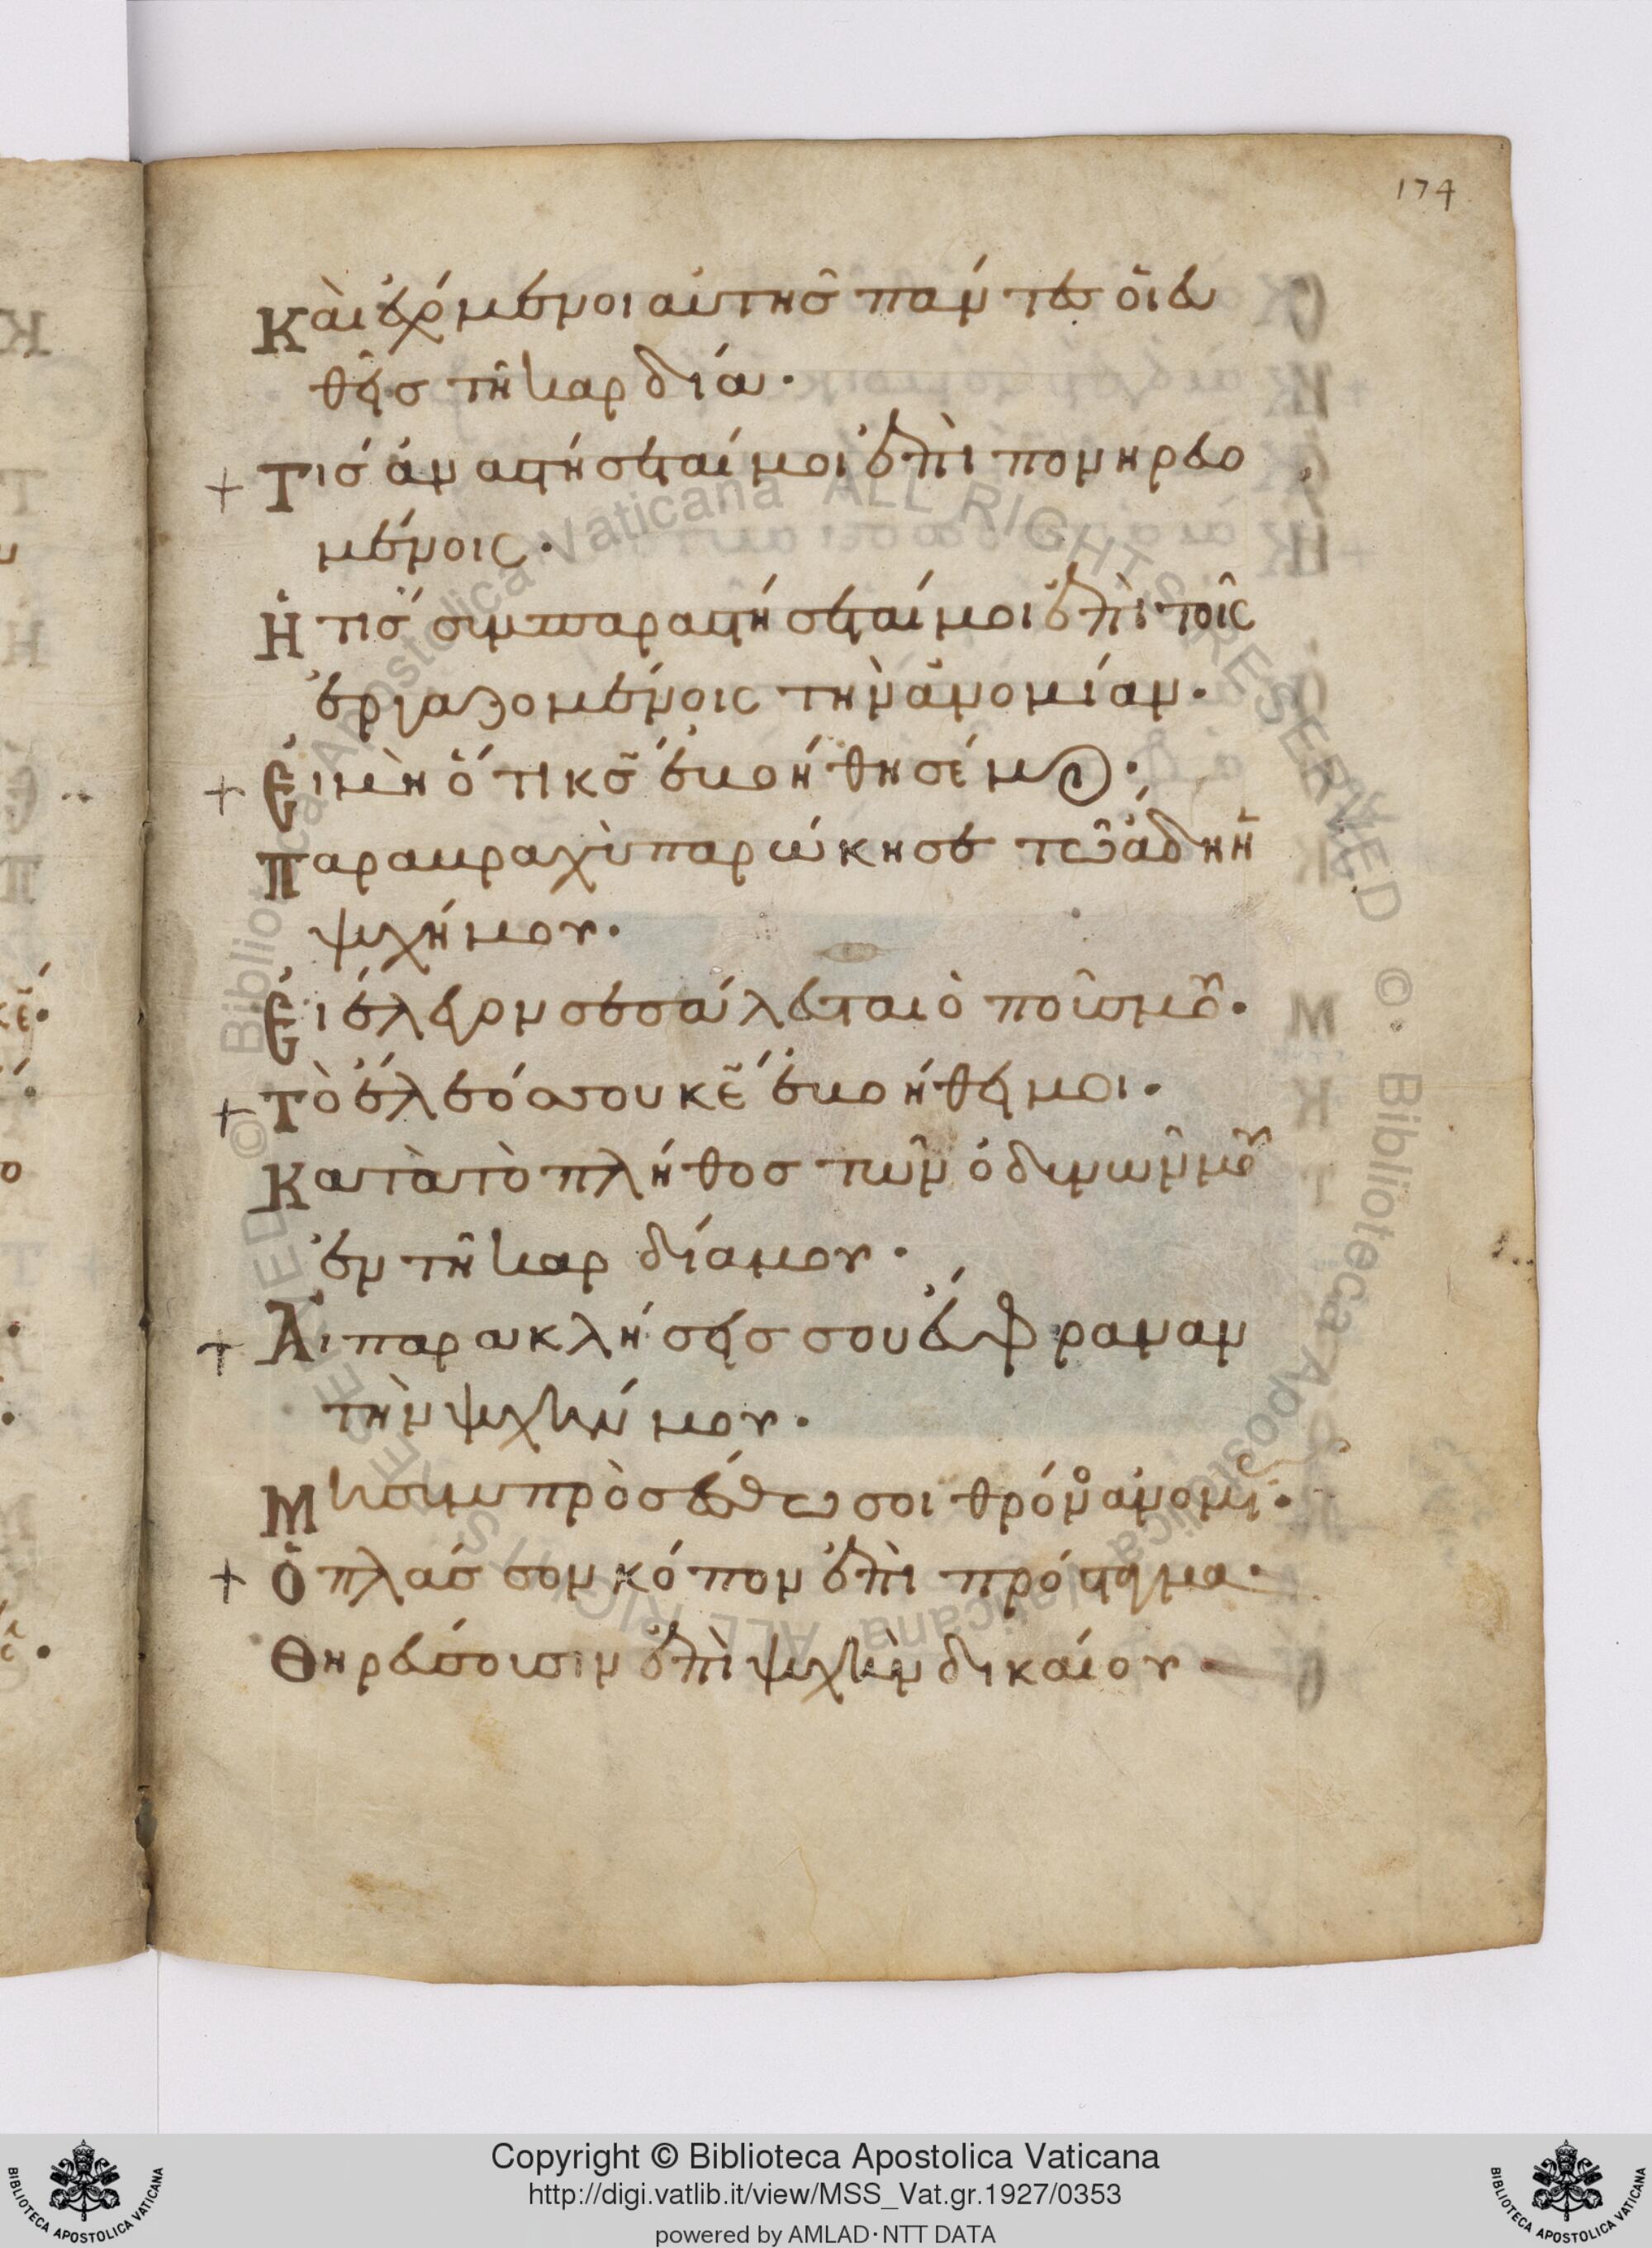 174
Καὶ ἐχόμενοι αὐτῆς πάντες οἱ εὐ
θεῖς τῇ καρδίᾳ·
+ Τίς ἀναστήσεταί μοι ἐπὶ πονηρευο
μένοις·
Ἢ τίς συμπαραστήσεταί μοι ἐπὶ τοῖς
ἐργαζομένοις τὴν ἀνομίαν·
+ Εἰ μὴ ὅτι κς̄ ἐβοήθησέ μοι·
Παραβραχὺ παρώκησε τῷ ἅδῃ ἡ
ψυχή μου·
Εἰ ἔλεγον σεσάλευται ὁ ποῦς μου·
+ Τὸ ἔλεός σου κε̄ ἐβοήθει μοι·
Κατὰ τὸ πλῆθος τῶν ὀδυνῶν μου
ἐν τῇ καρδίᾳ μου·
+ Αἱ παρακλήσεις σου εὔφραναν
τὴν ψυχήν μου·
Μὴ συμπροσέστω σοι θρόνος ἀνομίας·
+ Ὁ πλάσσων κόπον ἐπὶ πρόσταγμα·
Θηρεύσουσιν ἐπὶ ψυχὴν δικαίου
© Biblioteca Apostolica Vaticana ALL RIGHTS RESERVED
© Biblioteca Apostolica Vaticana ALL RIGHTS RESERVED
Copyright © Biblioteca Apostolica Vaticana
http://digi.vatlib.it/view/MSS_Vat.gr.1927/0353
powered by AMLAD·NTT DATA
BIBLIOTECA APOSTOLICA VATICANA
BIBLIOTECA APOSTOLICA VATICANA